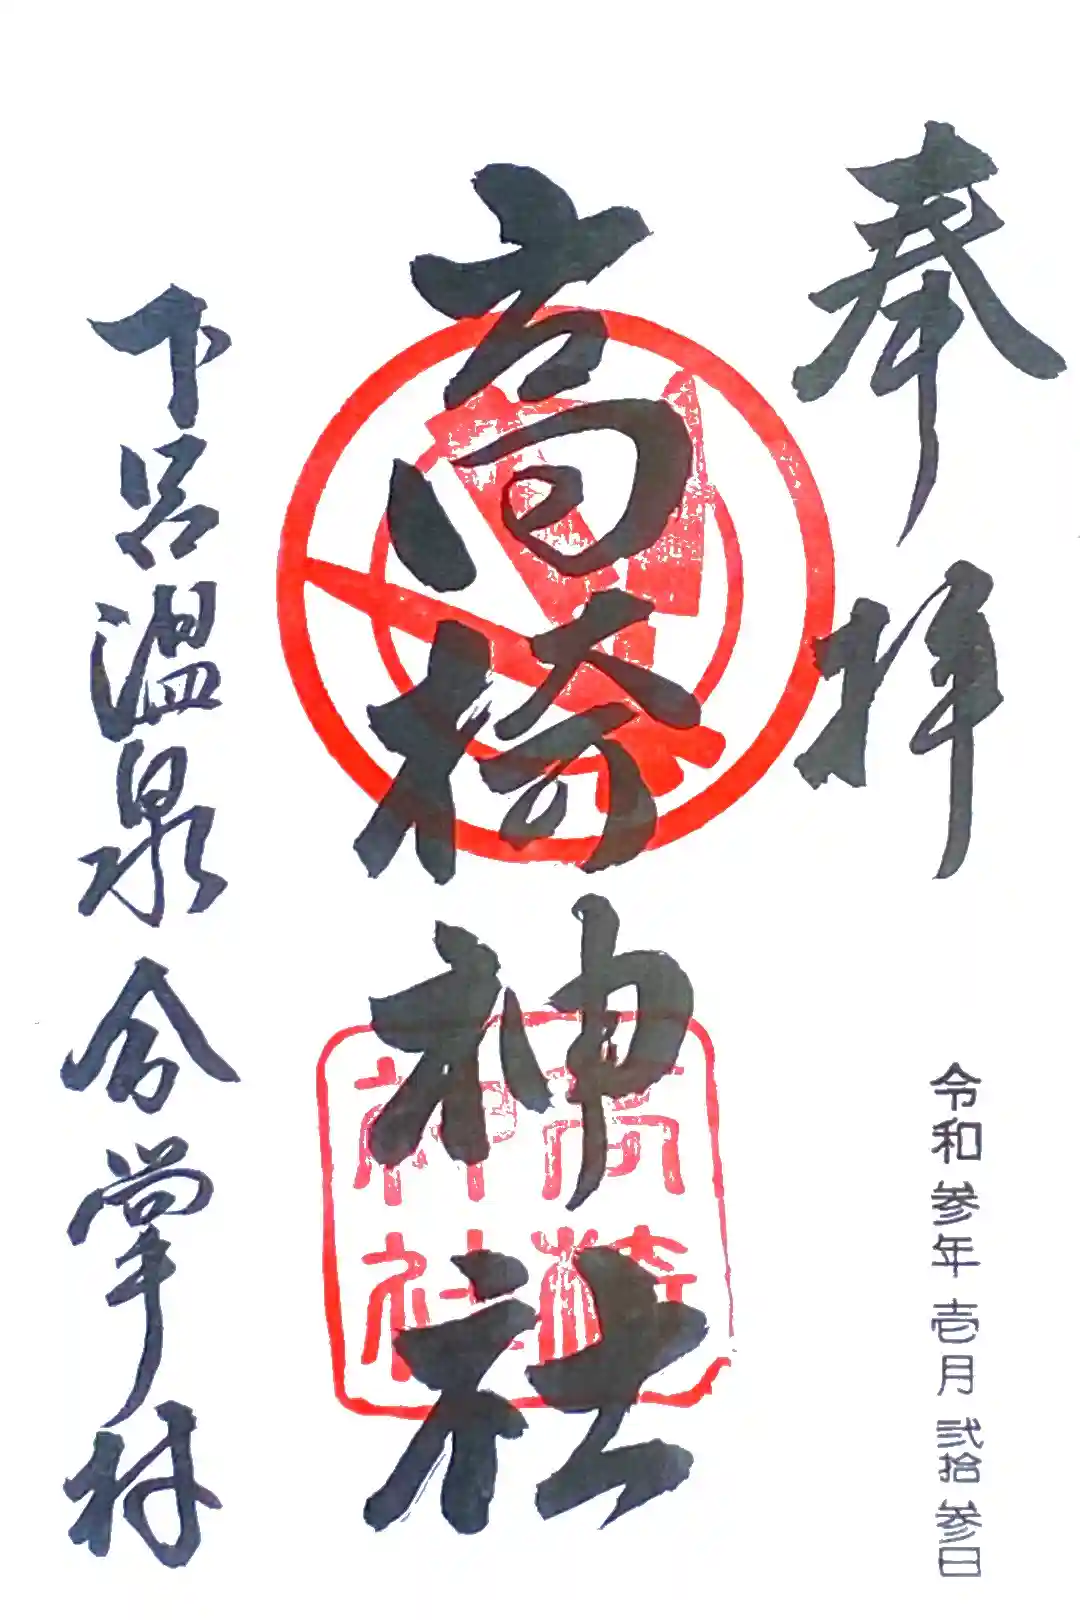 奉拝
令和参年壱月弐拾参日
高椅神社
高椅
神社
下呂温泉合掌村